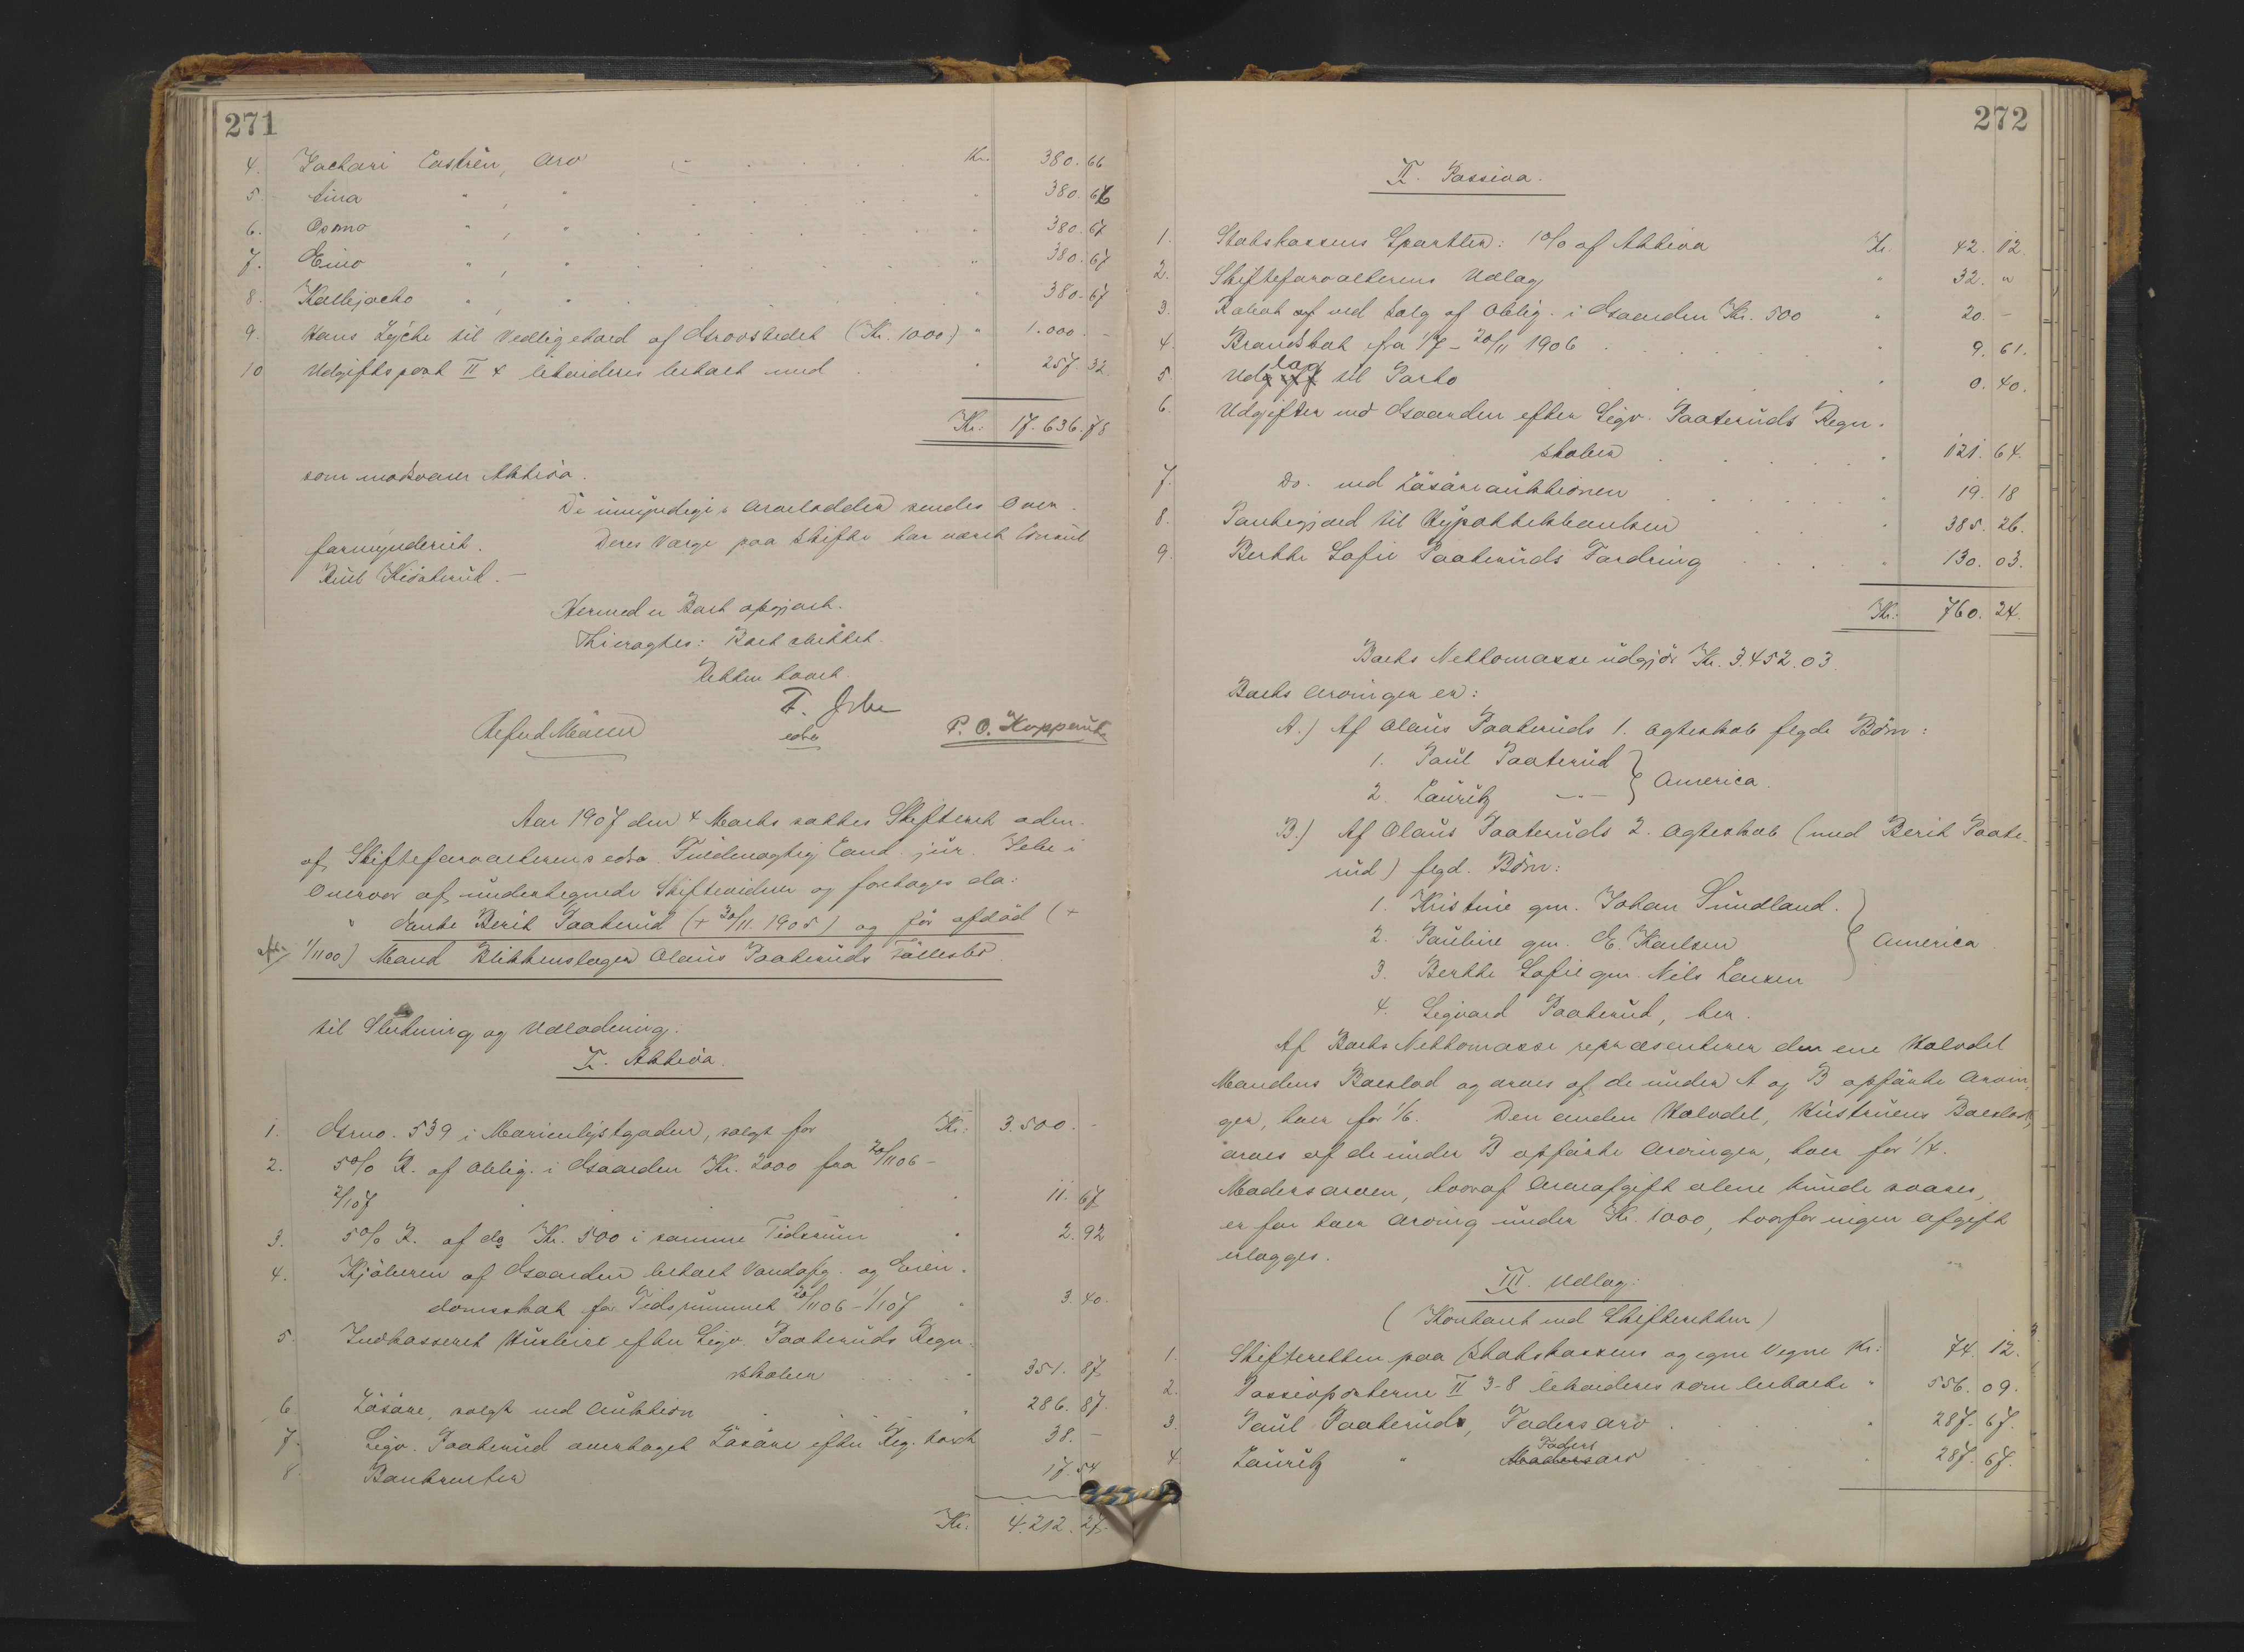 271
4. Zachari Castrén, Arv Kr. 380.66
5. Aina " , " " 380.66
6. Osmo " , " " 380.67
7. Eino " , " " 380.67
8. Kallejacko " , " " 380.67
9. Hans Lyche til Vedligehold af Gravstedet (Kr. 1000) " 1.000.-
10 Udgiftspost II 4 likvideres betalt med " 257.32
Kr: 17.636.78
som modsvarer Aktiva.
De umyndiges Arvelodder sendes Over-
formynderiet. Deres Værge paa Skifte har været Consul
Kiørterud.-
Hermed er Boet opgjort.
Thi eragtes: Boet sluttet.
Retten hævet.
F. Jebe
edsv
P. O. Kopperud
Aar 1907 den 4 Marts sattes Skifteret aden.
af Skifteforvalterens edsv. Fuldmægtig Cand. jur. Jebe i
Overvær af undertegnede Skiftevidner og foretoges da:
" Enke Berit Paaterud (+ 30/11 1905) og før afdød (+
1/11 00) Mand Blikkenslager Olaus Paateruds Fællesbo
til Slutning og Udlodning.
I. Aktiva.
1. Grno. 539 i Marienlystgaden, solgt for Kr: 3.500.-
2. 5% R. af Oblig. i Gaarden Kr. 2000 fra 20/11 06 -
2/1 07 " 11.67
3. 5% R. af do Kr. 500 i samme Tidsrum " 2.92
4. Kjøberen af Gaarden betalt Vandafg. og Eien-
domsskat for Tidsrummet 20/11 06 - 1/1 07 " 3.40.
5. Indkasseret Husleie efter Sigv. Paateruds Regn-
skaber " 351.87
6. Løsøre, solgt ved Auktion " 286.87.
7. Sigv. Paaterud overtaget Løsøre efter Reg. takst 38.-
8. Bankrenter 17.54
Kr: 4.212.27.
272
II. Passiva.
1. Statskassens Sportler: 1% af Aktiva Kr. 42.12
2. Skifteforvalterens Udlæg " 32. "
3. Rabat af ved Salg af Oblig. i Gaarden Kr. 500 " 20.-
4. Brandskat fra 1/7 - 20/11 1906 " 9.61.
5 Udlæg til Porto " 0.40.
6. Udgifter ved Gaarden efter Sigv. Paateruds Regn-
skaber " 121.64.
7. Do. ved Løsøreauktionen " 19.18
8. Pantegjæld til Hypothekbanken " 385.26.
9. Berthe Sofie Paateruds Fordring " 130.03.
Kr: 760.24.
Boets Nettomasse udgjør Kr. 3.452.03.
Boets Arvinger er:
A.) Af Olaus Paateruds 1. Ægteskab flgde Børn:
1. Paul Paaterud
2. Lauritz -"- } America.
B.) Af Olaus Paateruds 2. Ægteskab (med Berit Paate-
rud) flgd. Børn:
1. Kristine gm. Johan Sundland.
2. Pauline gm. E. Karlsen } America
3. Berthe Sofie gm. Nils Larsen
4. Sigvard Paaterud, her.
Af Boets Nettomasse repræsenterer den ene Halvdel
Mandens Boeslod og arves af de under A og B opførte Arvin-
ger, hver for 1/6. Den anden Halvdel, Hustruens Boeslod,
arves af de under B opførte Arvinger, hver for 1/4.
Modersarven, hvoraf Arveafgift alene kunde svares,
er for hver Arving under Kr. 1000, hvorfor ingen Afgift
erlægges.
III. Udlæg:
(Kontant ved Skifteretten)
1. Skifteretten paa Statskassens og egne Vegne Kr: 74.12.
2. Passivposterne II 3-8 likvideres som betalte " 556.09.
3. Paul Paaterud, Fadersarv " 287.67.
4. Lauritz " Fadersarv " 287.67.